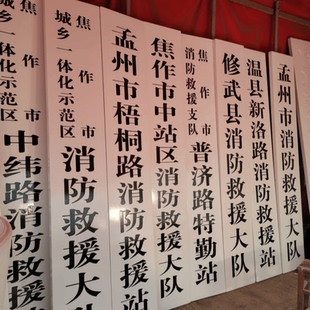 焦作市
城乡一体化示范区
中纬路消防救援
焦作市
城乡一体化示范区
消防救援大队
孟州市梧桐路消防救援站
焦作市中站区消防救援大队
焦作市
消防救援支队
普济路特勤站
修武县消防救援大队
温县新洛路消防救援站
孟州市消防救援大队